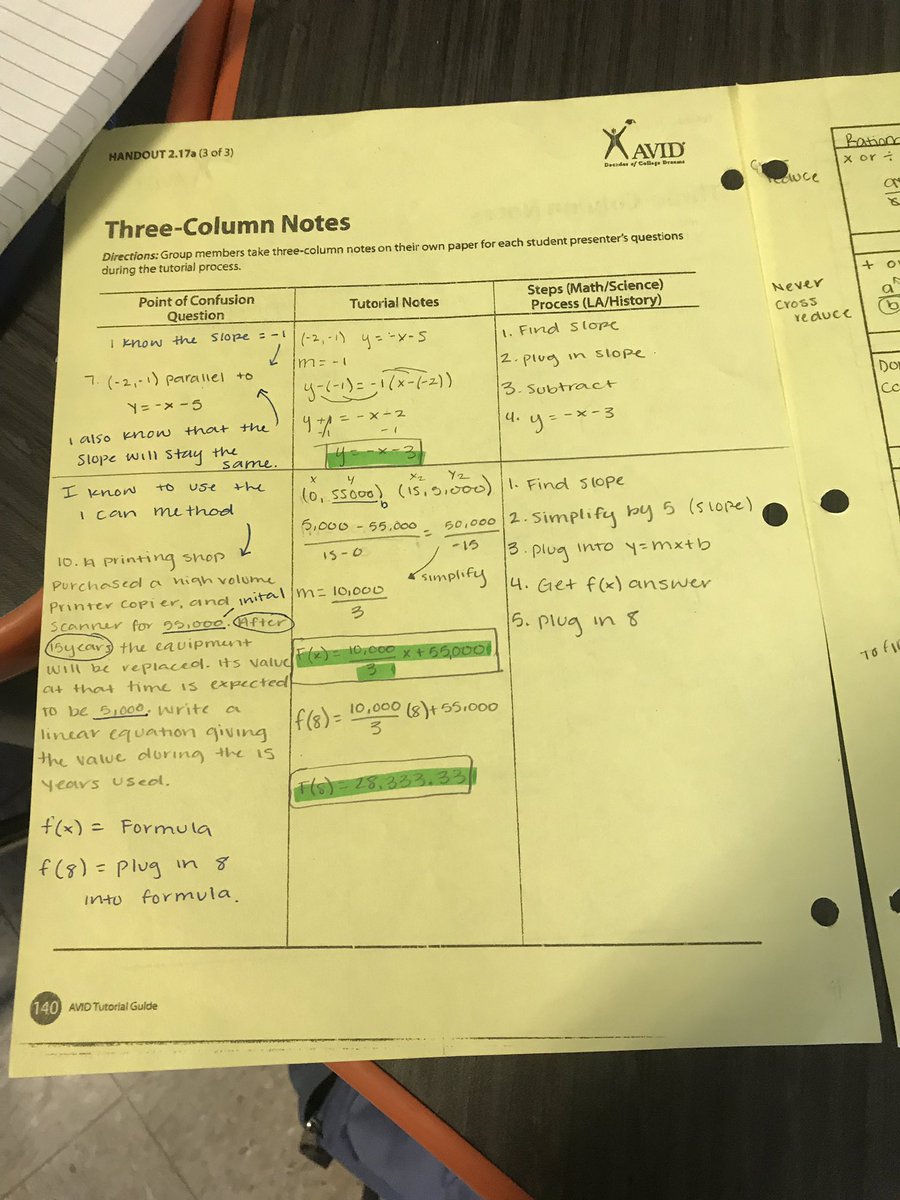 HANDOUT 2.17a (3 of 3)
AVID
Decades of College Dreams
Three-Column Notes
Directions: Group members take three-column notes on their own paper for each student presenter's questions
during the tutorial process.
Point of Confusion
Question
I know the slope = -1
7. (-2,-1) parallel to
y = -x - 5
I also know that the
slope will stay the
same.
I know to use the
I can method
10. A printing shop
purchased a high volume
printer copier, and inital
scanner for 55,000. After
15 years the equipment
will be replaced. Its value
at that time is expected
to be 5,000. Write a
linear equation giving
the value during the 15
years used.
f(x) = Formula
f(8) = plug in 8
into formula.
Tutorial Notes
(-2,-1) y = -x - 5
m = -1
y-(-1) = -1(x-(-2))
y+1 = -x-2
-1 -1
y = -x - 3
x y x2 y2
(0, 55000) (15, 5,000)
b
5,000 - 55,000 = 50,000
15-0 -15
simplify
m = 10,000
3
F(x) = 10,000 x + 55,000
3
f(8) = 10,000 (8) + 55,000
3
F(8) = 28,333.33
Steps (Math/Science)
Process (LA/History)
1. Find slope
2. plug in slope.
3. subtract
4. y = -x - 3
1. Find slope
2. Simplify by 5 (slope)
3. plug into y=mx+b
4. Get f(x) answer
5. plug in 8
140 AVID Tutorial Guide
reduce
x or ÷
Never
cross
reduce